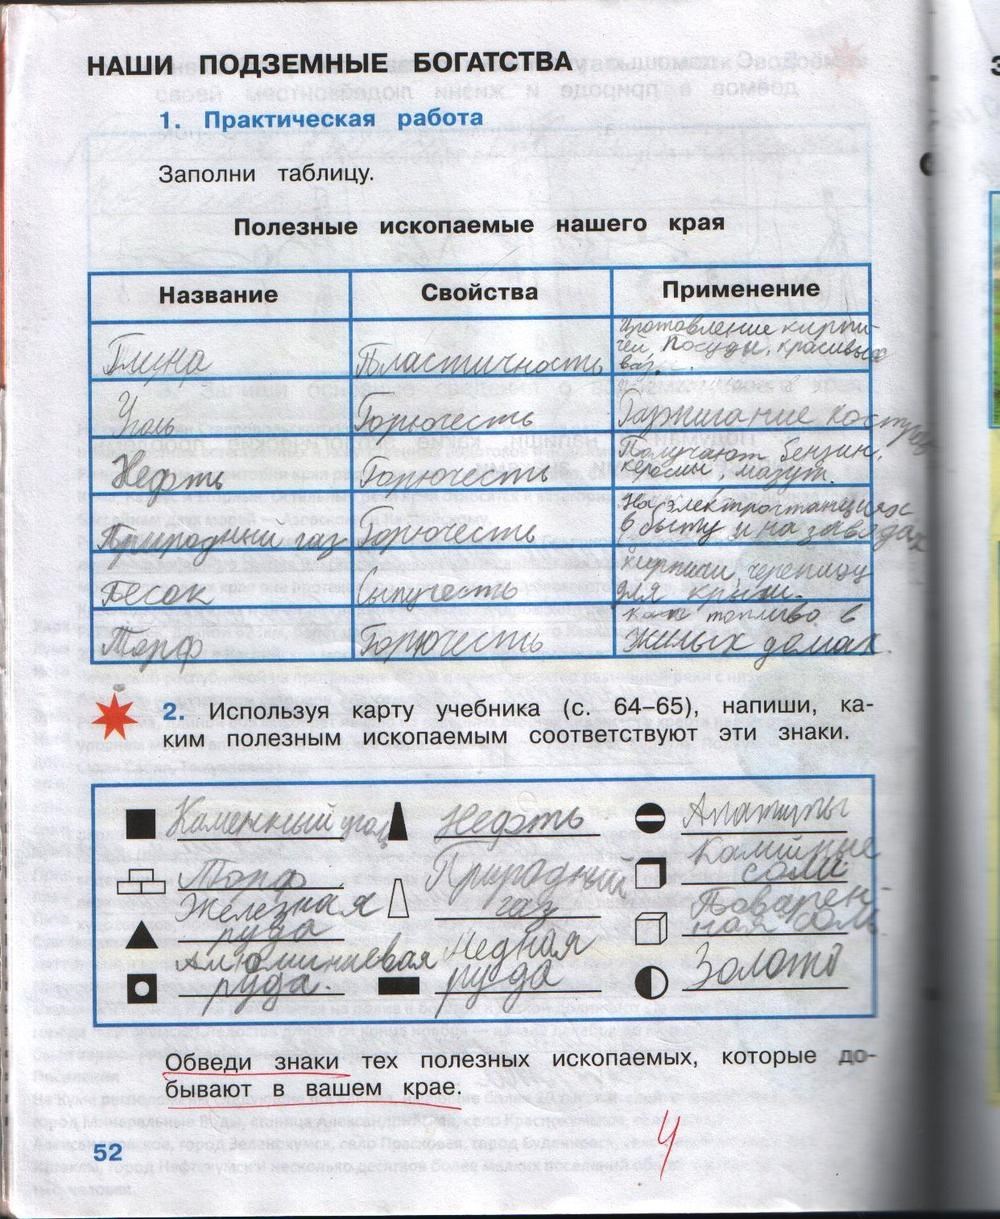 НАШИ ПОДЗЕМНЫЕ БОГАТСТВА
1. Практическая работа
Заполни таблицу.
Полезные ископаемые нашего края
Название Свойства Применение
Глина Пластичность Изготовление кирпи-
чей, посуды, красивых
ваз.
Уголь Горючесть Разжигание костров
Нефть Горючесть Получают бензин,
керосины, мазут.
Природный газ Горючесть На электростанциях
в быту и на заводах
Песок Сыпучесть кирпичи, черепицу
для крыши.
Торф Горючесть как топливо в
жилых домах.
2. Используя карту учебника (с. 64–65), напиши, ка-
ким полезным ископаемым соответствуют эти знаки.
Каменный уголь Нефть Апатиты
Торф Природный газ Калийные соли
Железная руда Поварен-
ная соль.
Алюминиевая руда. Медная руда Золото
Обведи знаки тех полезных ископаемых, которые до-
бывают в вашем крае.
4
52